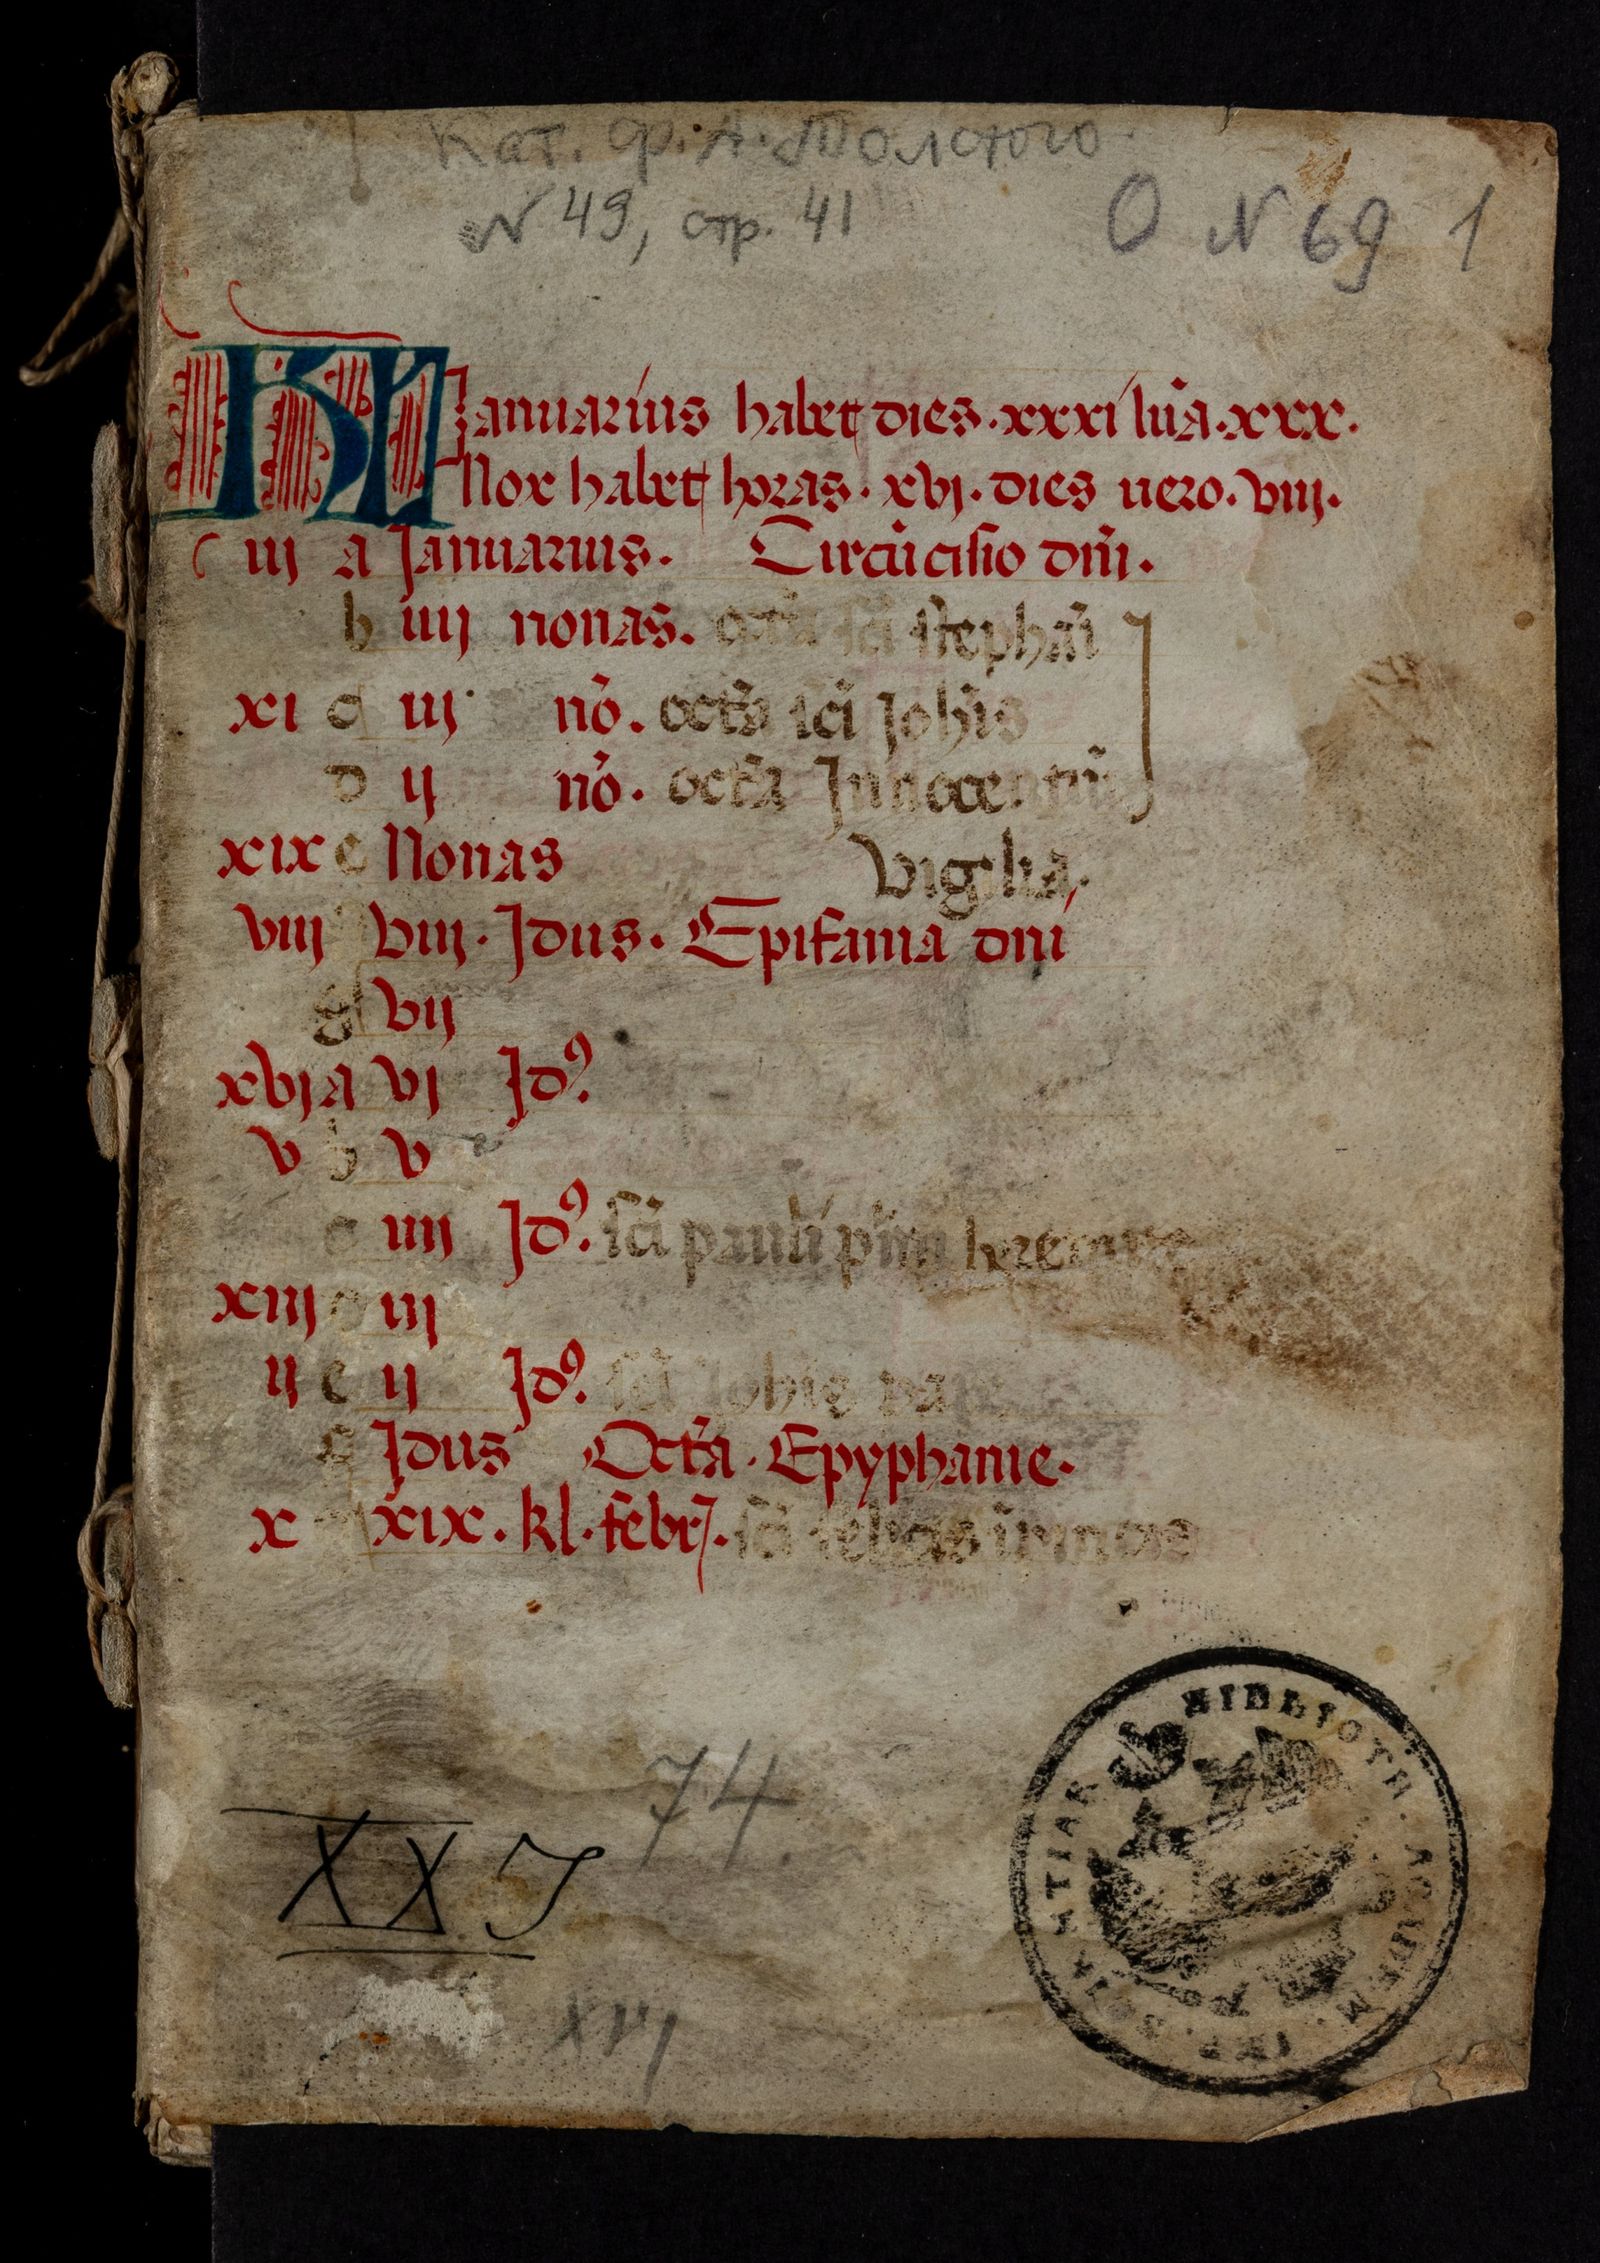 Кат. Ф. А. Толстого.
N 49, стр. 41
O N 69 1
KL Januarius habet dies · xxxi lũa · xxx ·
Nox habet horas · xvj · dies uero · viij ·
iij a Januarius · Circũcisio dñi ·
b iiij nonas · octã sc̃i stephãi
xi c iij nõ · octã sc̃i Joh̃is
d ij nõ · octã Innocentũ
xix e Nonas Vigilia ·
viij viij · Jdus · Epifania dñi
g vij
xvj a vj Jdꝰ
v b v
c iiij Jdꝰ sc̃i pauli pⁱmi heremite
xiij d iij
ij e ij Jdꝰ sc̃i Joh̃is pape
f Jdus Octã · Epyphanie ·
x g xix · kl · febrj · sc̃i felicis
74.
XXI
xvj
BIBLIOTH. ACADEM. IMP. SCIENTIAR